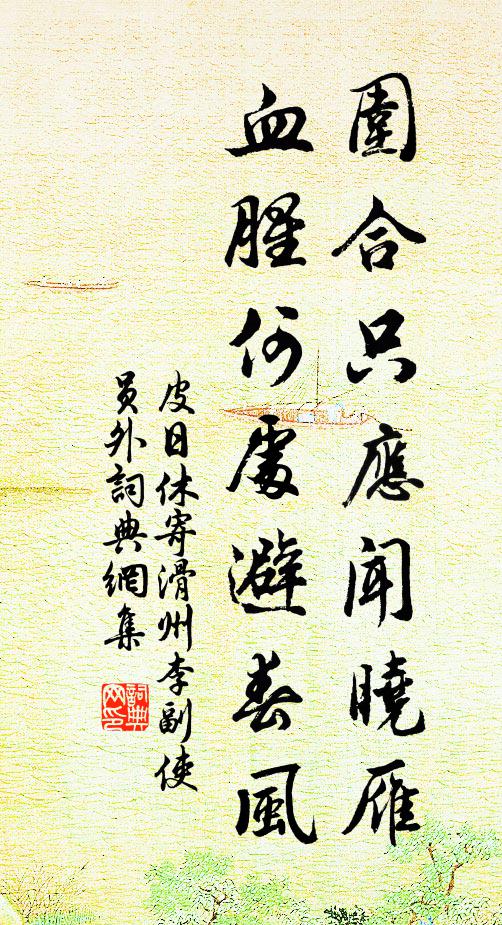 圍合只應聞曉雁
血腥何處避春風
皮日休寄滑州李副使
員外詞典網集
詞典
网印